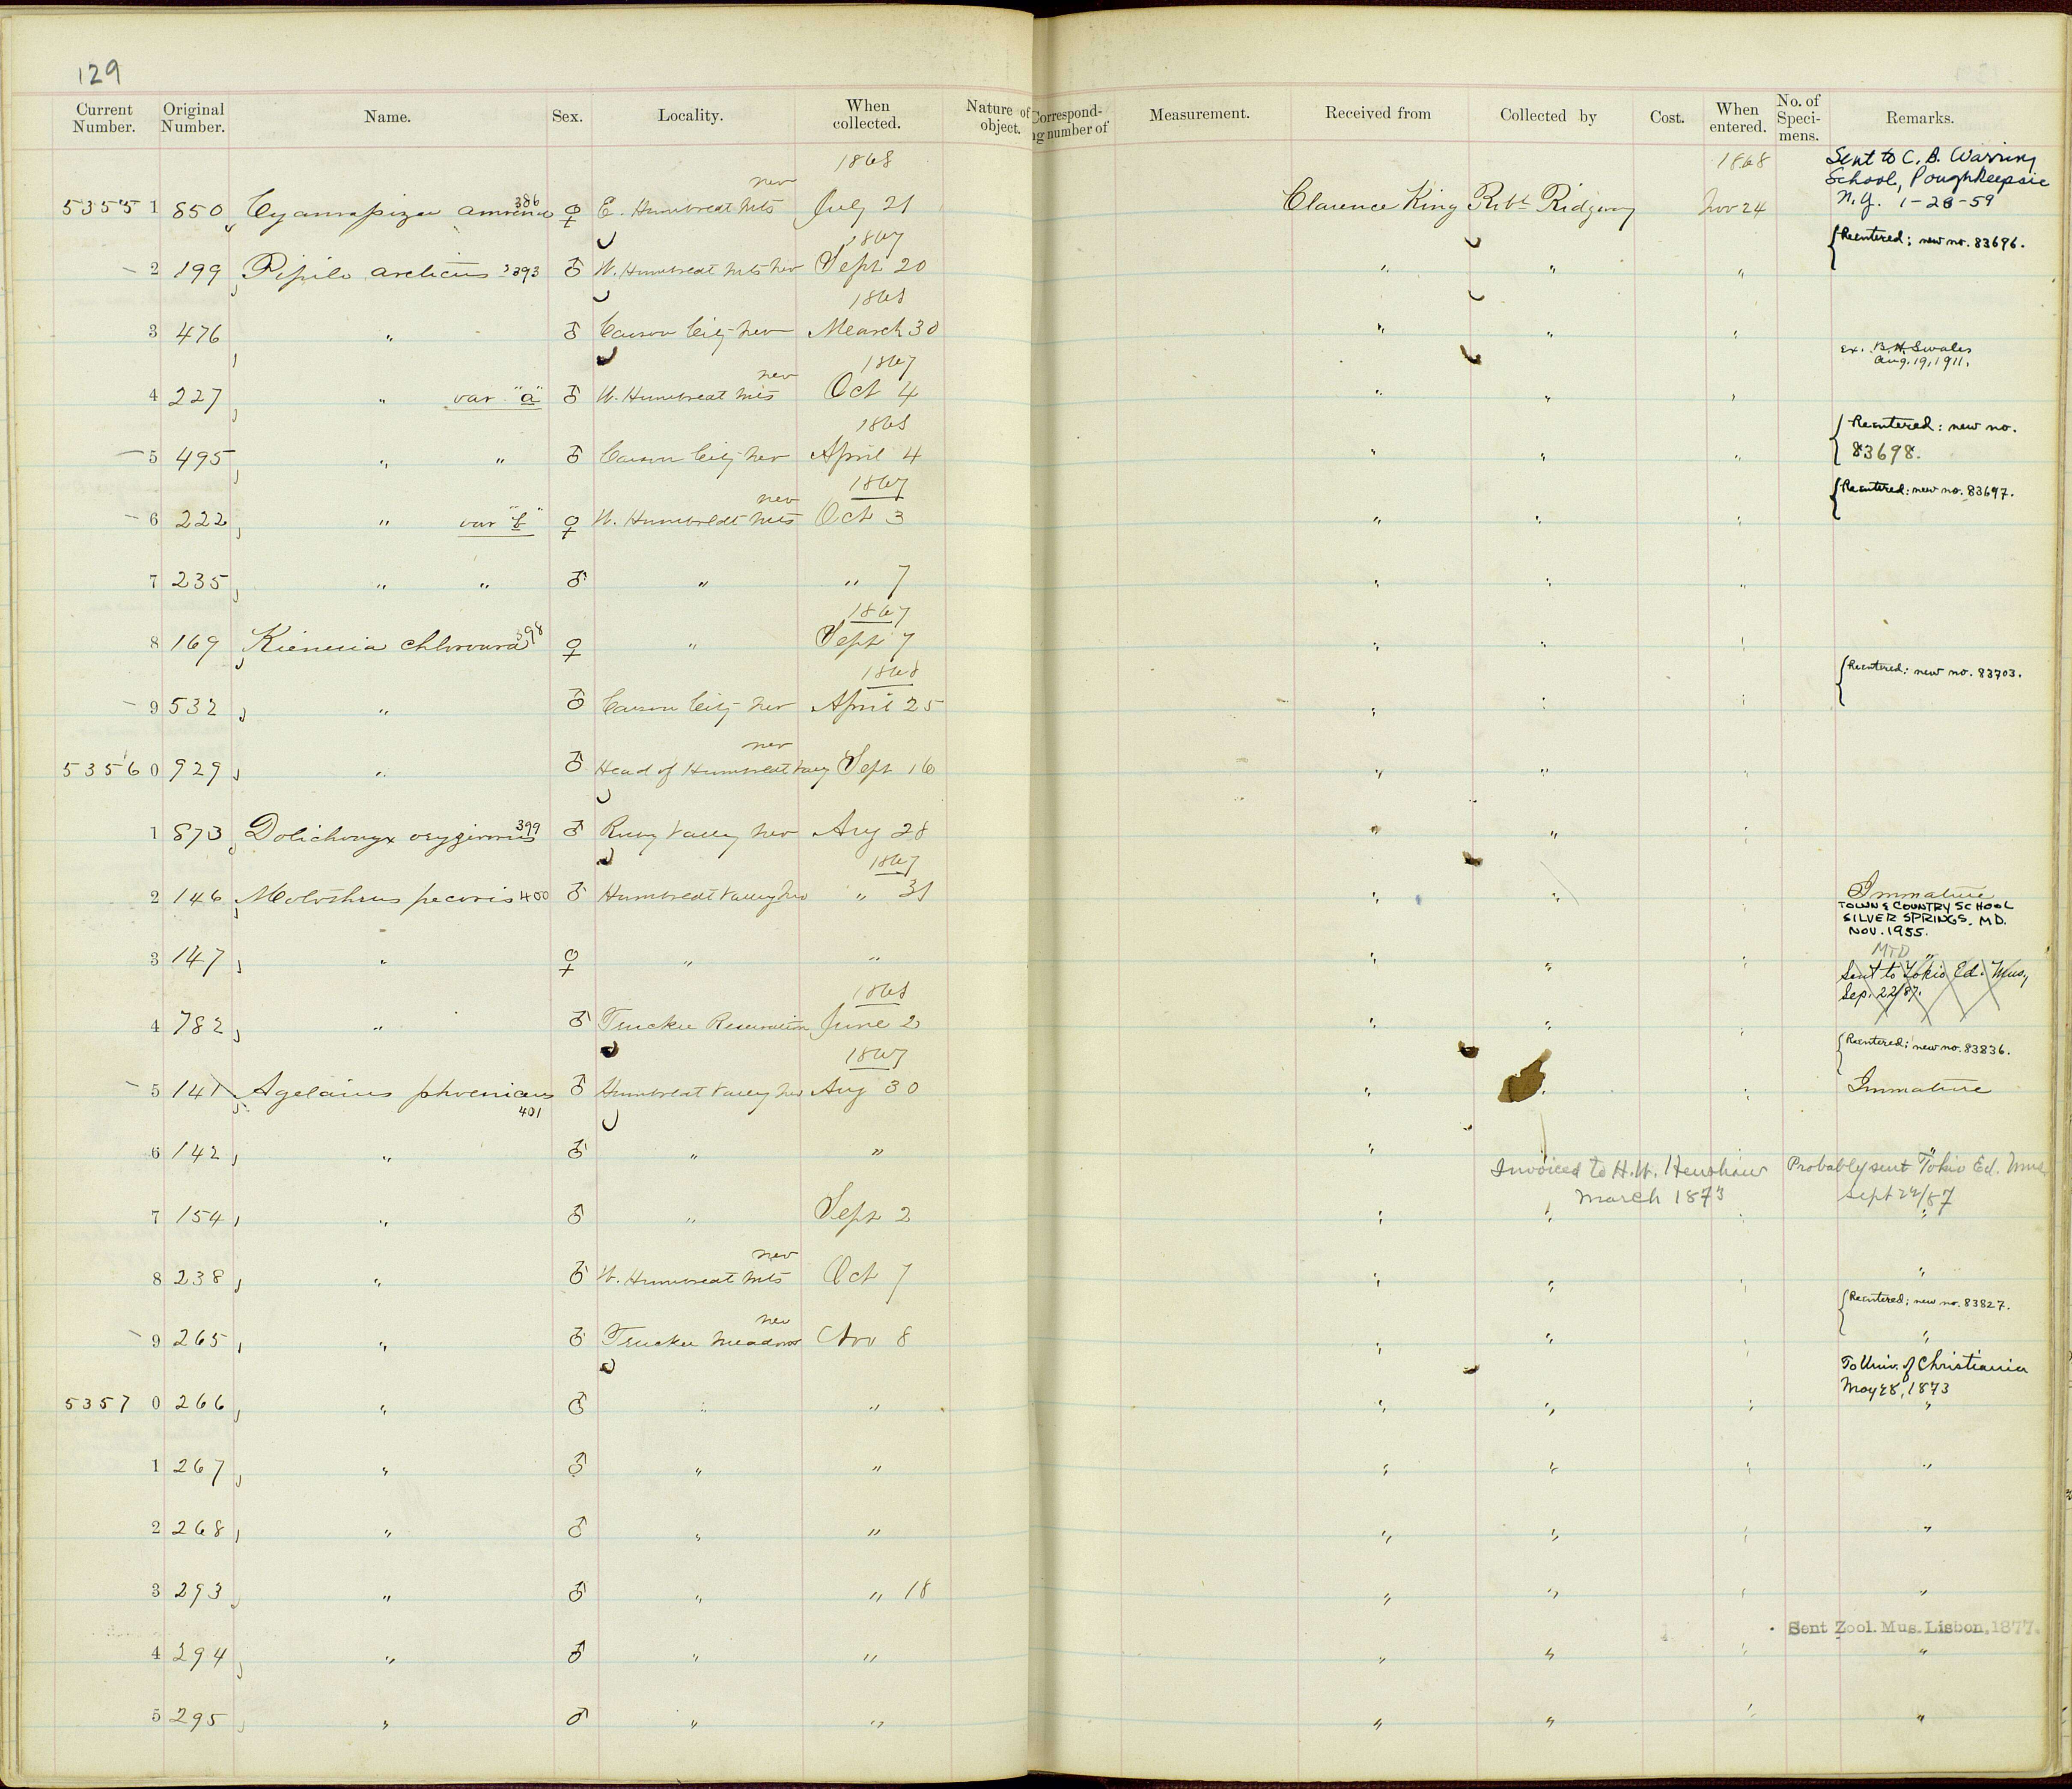 129
Current Number. Original Number. Name. Sex. Locality. When collected. Nature of object. Correspond-ng number of Measurement. Received from Collected by Cost. When entered. No. of Speci-mens. Remarks.
1868 1868 Sent to C. B. Warring
School, Poughkeepsie
nev N.Y. 1-28-59
53551 850 Cyanospiza amoena 386 ♀ E. Humboldt Mts July 21 Clarence King Robt Ridgway Nov 24
1867 {Reentered; new no. 83696.
2 199 Pipilo arcticus 393 ♂ W. Humboldt Mts Nev Sept 20 " " "
1868
3 476 " ♂ Carson City Nev March 30 " " "
ex. B.H. Swales
Aug. 19, 1911.
nev 1867
4 227 " var "a" ♂ W. Humboldt Mts Oct 4 " " "
1868 {Reentered: new no.
5 495 " " ♂ Carson City Nev April 4 " " " 83698.
nev 1867 {Reentered: new no. 83697.
6 222 " var "b" ♀ W. Humboldt Mts Oct 3 " " "
7 235 " " ♂ " " 7 " " "
1867
8 169 Kieneria chlorura 398 ♀ " Sept 7 " " "
1868 {Reentered: new no. 83703.
9 532 " ♂ Carson City Nev April 25 " " "
nev
53560 929 " ♂ Head of Humboldt Valley Sept 16 " " "
1 873 Dolichonyx oryzivorus 399 ♂ Ruby Valley Nev Aug 28 " " "
1867
2 146 Molothrus pecoris 400 ♂ Humboldt Valley Nev " 31 " " " Immature
TOWN & COUNTRY SCHOOL
SILVER SPRINGS. MD.
NOV. 1955.
MTD
3 147 " ♀ " " " " " "
Sent to Tokio Ed. Mus,
Sep. 22/87.
1868
4 782 " ♂ Truckee Reservation June 2 " " "
1867 {Reentered; new no. 83836.
5 141 Agelaius phoeniceus 401 ♂ Humboldt Valley Nev Aug 30 " " " Immature
6 142 " ♂ " " " "
Invoiced to H.W. Henshaw Probably sent Tokio Ed. Mus
March 1873 Sept 22/87
7 154 " ♂ " Sept 2 " " " "
nev
8 238 " ♂ W. Humboldt Mts Oct 7 " " " "
nev {Reentered; new no. 83827.
9 265 " ♂ Truckee Meadows Nov 8 " " " "
To Univ. of Christiania
May 28, 1873
53570 266 " ♂ " " " " " "
1 267 " ♂ " " " " " "
2 268 " ♂ " " " " " "
3 293 " ♂ " " 18 " " " "
Sent Zool. Mus. Lisbon, 1877.
4 294 " ♂ " " " " " "
5 295 " ♂ " " " " " "